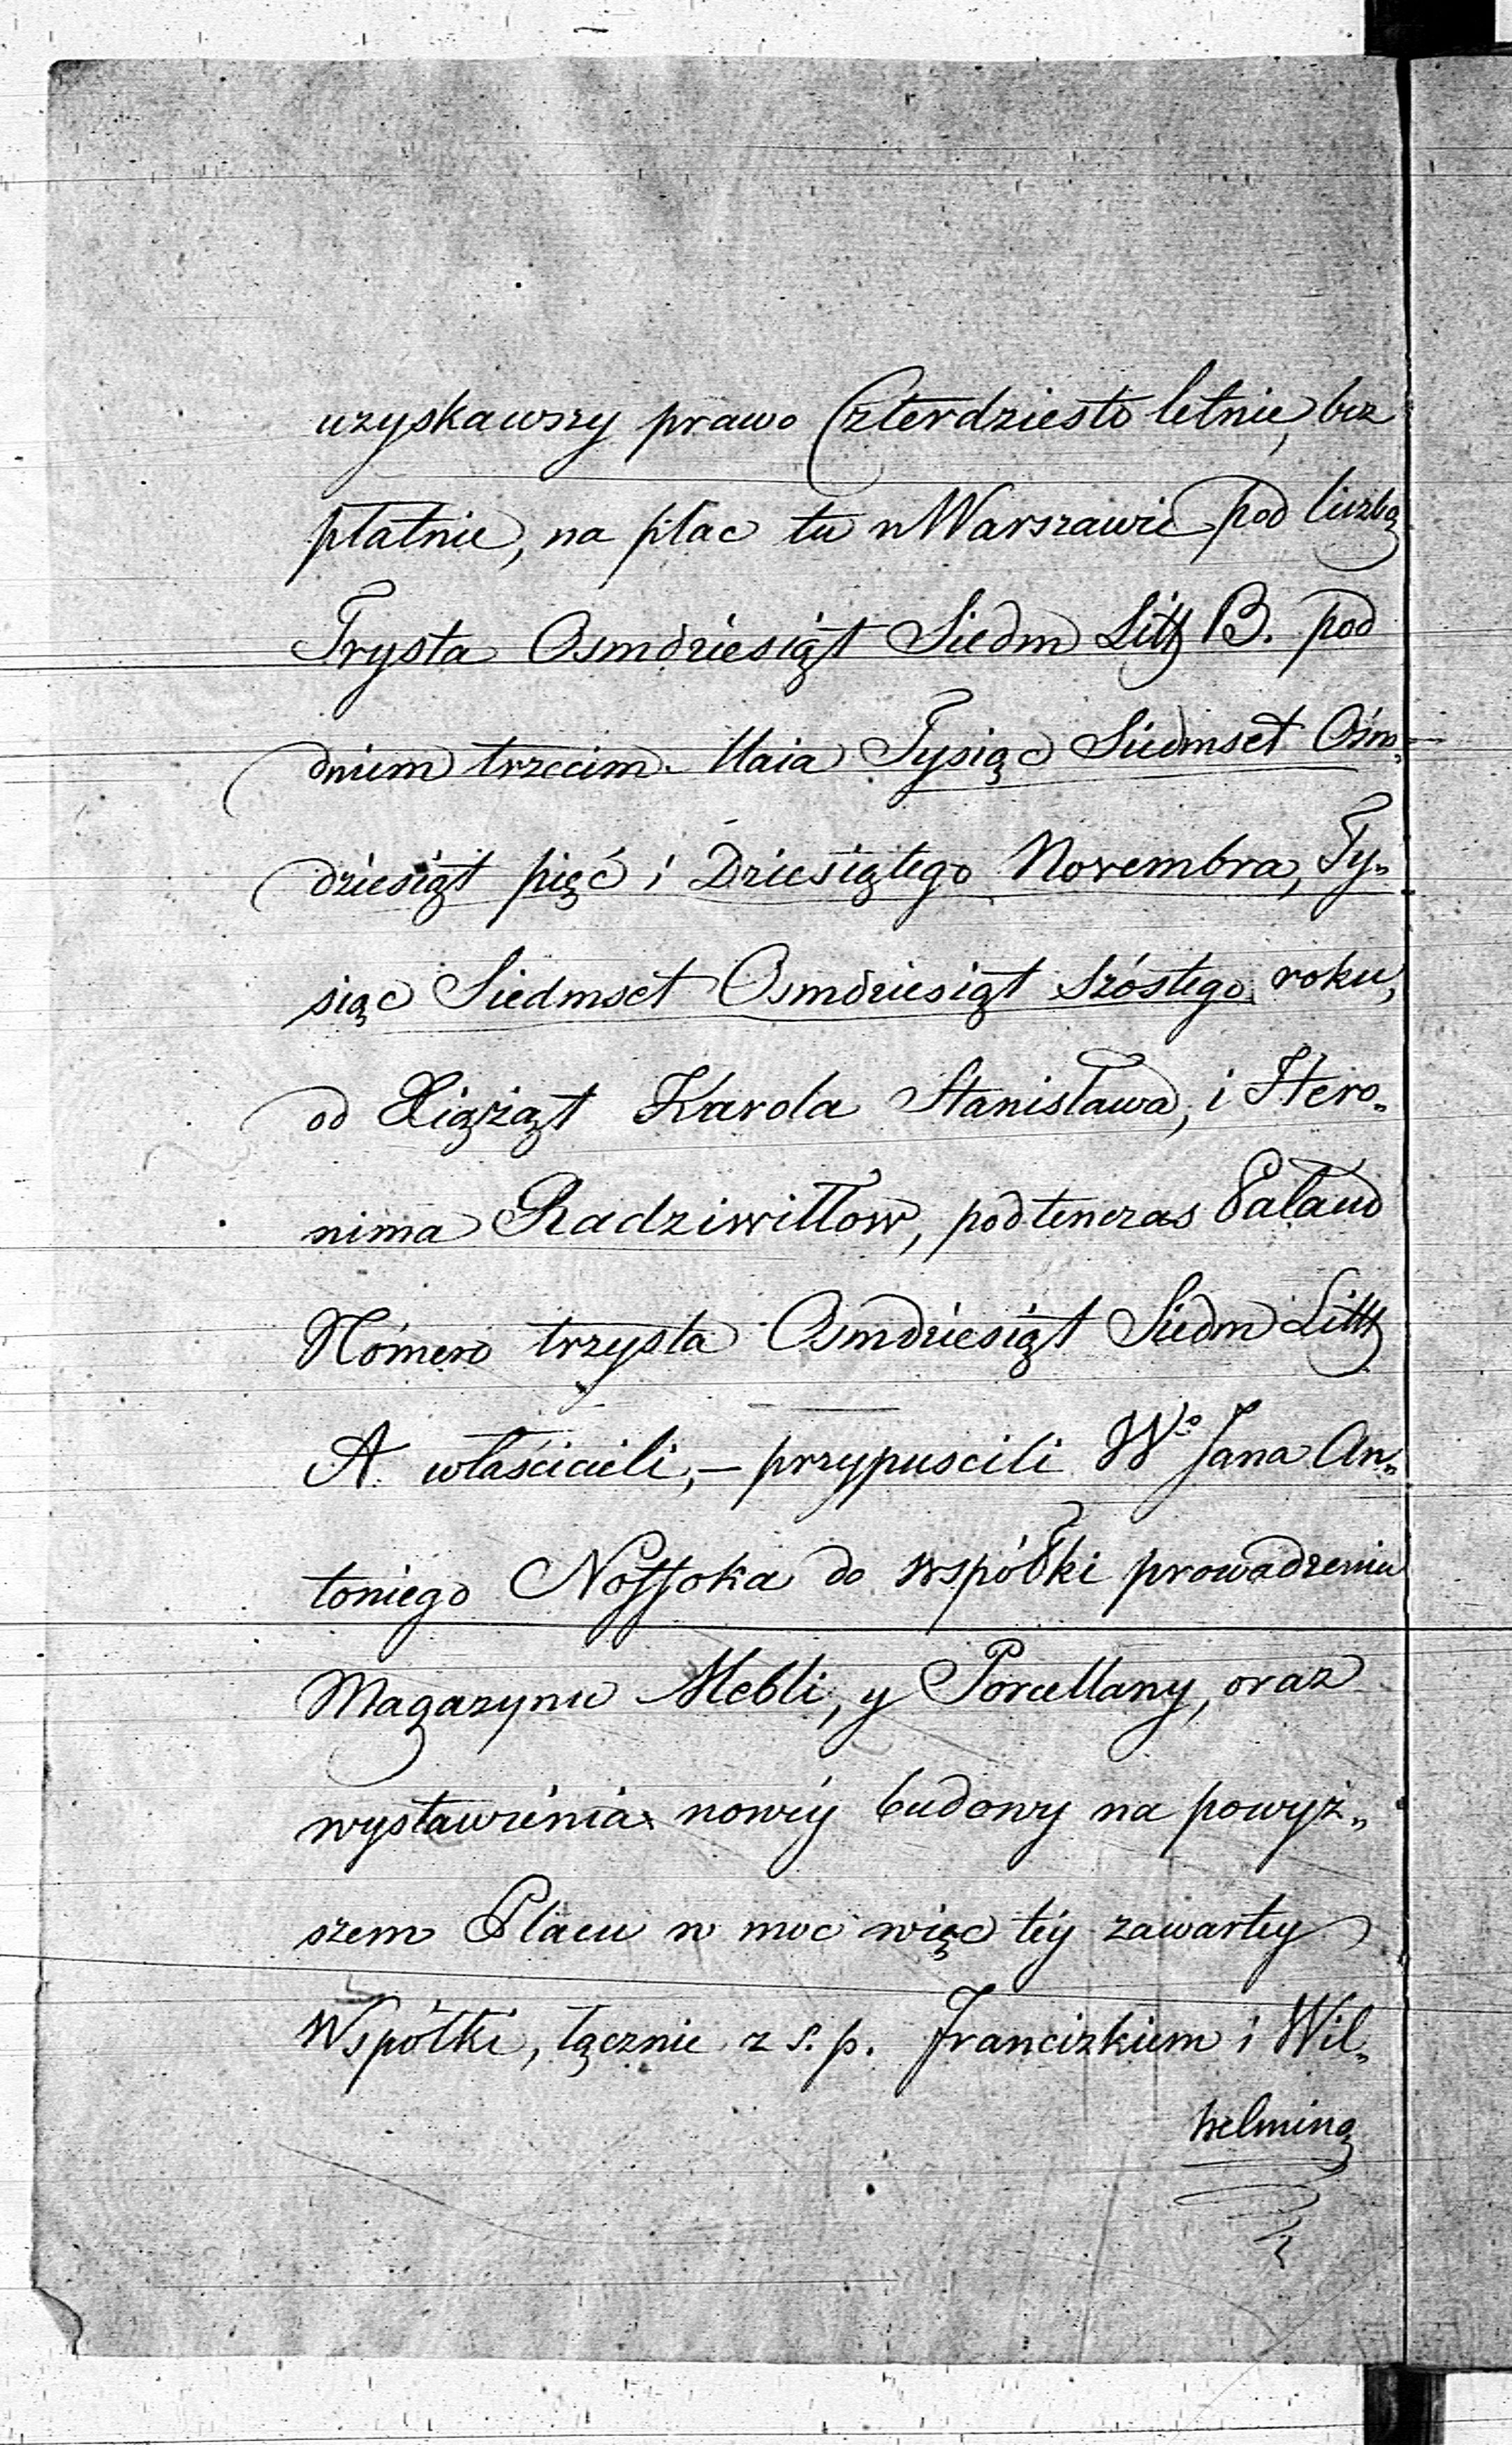 uzyskawszy prawo Czterdziesto letnie, bez
płatnie, na plac tu w Warszawie pod liczbą
Trysta Osmdziesiąt Siedm Litt B. pod
dniem trzecim Maia Tysiąc Siedmset Ośm„
dziesiąt pięć i Dziesiątego Novembra, Ty„
siąc Siedmset Osmdziesiąt szóstego roku,
od Xiążąt Karola Stanisława, i Hero„
nima Radziwiłłow, podtenczas Pałacu
Nómero trzysta Osmdziesiąt Siedm Litt
A. właścicieli, – przypuscili Wo Jana An„
toniego Noffoka do wspólki prowadzeniu
Magazynu Mebli, y Porcellany, oraz
wystawienia nowéy budowy na powyż„
szem Placu w moc więc téy zawartey
Wspólki, łącznie z s. p. Franciszkiem i Wil„
helminą